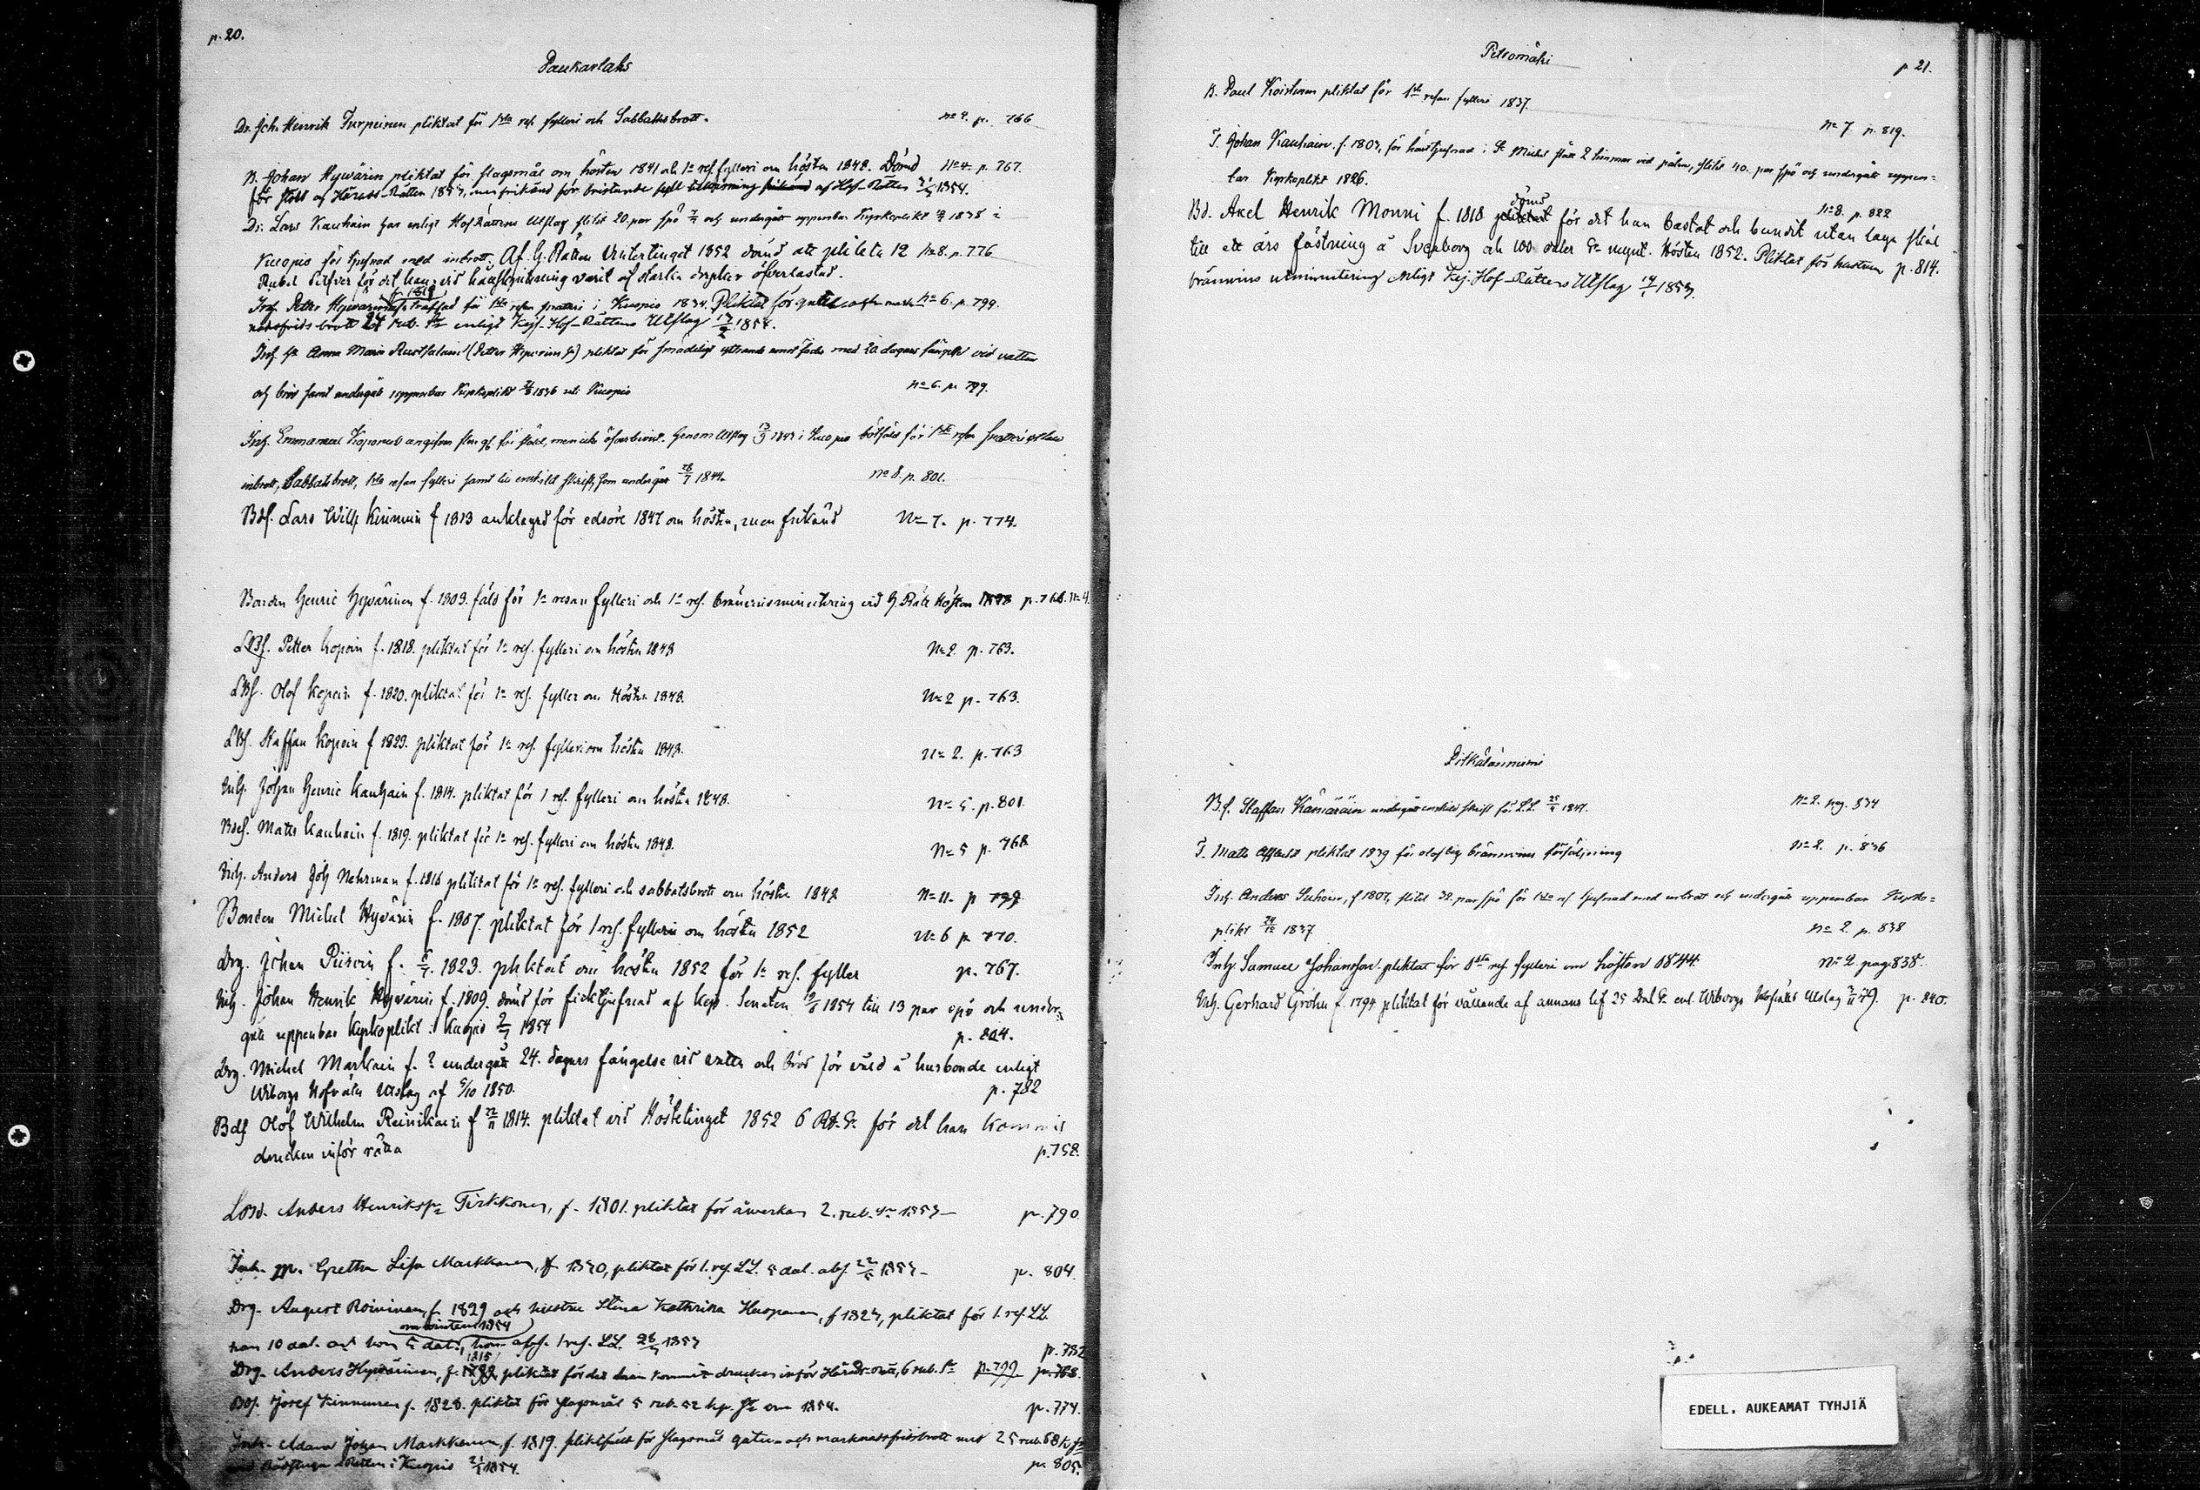 p. 20.
Paukarlaks
Dr. Joh. Henrik Turpeinen pliktat för 1sta res. fylleri och Sabbathsbrott. no 2. p. 766
B. Johan Hyvärin pliktat för slagsmål om hösten 1841 och 1a res. fylleri om hösten 1848. Dömd no 4. p. 767.
för stöld af Härads-Rätten 1853, men frikänd för bristande af Hof-Rätten 1854.
Dr. Lars Kauhain har enligt Hof Rättens Utslag slitit 20. par spö och undergått uppenbar Kyrkoplikt 1838 i
Kuopio för tjufnad med inbrott. Af H. Rätten Vintertinget 1852 dömd att plikta 12 no 8. p. 776
Rubel Silfver för det han vid varit af starka drycker öfverlastad.
Inh. Petter Hyvärin f. 1818 straffad för 1sta resan snatteri i Kuopio 1834. Pliktat för gatu och mark- no 6. p. 799.
nadsfrids brott 24 rub. Sr enligt Kejs. Hof-Rättens Utslag 1854.
Inh. h. Anna Maria (Petter Hyvärins h.) pliktat för smädeligt med 20 dagars fängelse vid vatten
och bröd samt undergått uppenbar Kyrkoplikt 1836 uti Kuopio no 6. p. 799.
Inh. Emmanuel Koponen angifven för stöld, men icke öfverbevist. Genom Utslag 1843 i Kuopio botfäld för 1sta resan snatteri
inbrott, Sabbatsbrott, 1sta resan fylleri samt till enskildt skrift, som undergått 1844. no 8. p. 801.
Bdf. Lars Wilh. Kinnunen f 1813 anklagad för edsöre 1847 om hösten, men frikänd No 7. p. 774.
Bonden Henric Hyvärinen f. 1809. fäld för 1a resan fylleri och 1a res. bränvinsminutering vid H. Rätt Hösten p. 768. no 4
LBf. Petter Kopoin f. 1818. pliktat för 1a res. fylleri om hösten 1848 No 2. p. 763.
LBf. Olof Kopoin f. 1820. pliktat för 1a res. fylleri om Hösten 1848. No 2 p. 763.
LBf. Staffan Kopoin f 1823. pliktat för 1a res. fylleri om hösten 1848. No 2. p. 763
Inh. Johan Henric Kauhain f. 1814. pliktat för 1 res. fylleri om hösten 1848. No 5. p. 801
Bdf. Matts Kauhain f. 1819. pliktat för 1a res. fylleri om hösten 1848. No 5 p. 768
Inh. Anders Joh. Nehrman f. 1816 pliktat för 1a res. fylleri och sabbatsbrott om hösten 1848 No 11. p 799
Bonden Michel Hyvärin f. 1807. pliktat för 1 res. fylleri om hösten 1852 No 6 p. 770.
Drg. Johan Piiroin f. 1823. pliktat om hösten 1852 för 1a res. fylleri p. 767.
Inh. Johan Henrik Hyvärin f. 1809. dömd för ficktjufnad af Kejs. Senaten 1854 till 13 par spö och under-
gått uppenbar kyrkoplikt i Kuopio 1854 p. 804.
Drg. Michel Markain f. ? undergått 24. dagars fängelse vid vatten och bröd för våld å husbonde enligt
Wiborgs Hofrätts Utslag af 5/10 1850. p. 782
Bdf Olof Wilhelm Reinikain f 1814. pliktat vid Hösttinget 1852 6 Rub. Sr för det han kommit
drucken inför rätta p. 758.
LBd. Anders Henriksson Tirkkonen, f. 1801. pliktat för åverkan 2. rub. Sr 1853 p. 790.
Inh. m. Gretha Lisa Markkanen, f. 1830, pliktat för 1. res. LL. 5 dal. abs. 1853 p. 804.
Drg. August Roivinen, f. 1829 och hustru Stina Kathrina Huoponen, f 1823, pliktat för 1. res. LL.
om vintern 1854
han 10 dal. och hon 5 dal., hon abs. 1 res. LL. 1853 p. 752
Drg. Anders Hyvärinen, f. 1815 pliktat för det han kommit drucken inför Härads-rätt, 6 rub. Sr p. 799 p. 768.
Bdf. Josef Kinnunen f. 1828. pliktat för slagsmål 5 rub. 52 kop. Sr om 1854. p. 774.
Inh. Adam Johan Markkanen, f. 1819. pliktfäld för slagsmål gatu- och marknadsfridsbrott med 25 rub. 68 k. Sr
Rådstugu Rätten i Kuopio 1854. p. 805.
Pitsomäki
p 21.
B. Paul Koistinen pliktat för 1sta resan fylleri 1837. no 7. p. 819.
T. Johan Kauhain, f. 1803, för hästtjufnad i St. Michel stått 2 timmar vid pålen, slitit 40. par spö och undergått uppen-
bar Kyrkoplikt 1826. no 8. p. 822
Bd. Axel Henrik Monni f. 1818 dömd för det han bastat och bundit utan laga skiäl
till ett års fästning å Sveaborg och 100 daler Sr mynt. Hösten 1852. Pliktat för p. 814.
bränvins utminutering enligt Kej. Hof-Rättens Utslag 1853.
Pitkälänniemi
Bf. Staffan Kämäräin undergått enskild skrift för LL. 1847. no 2. pag. 834
T. Matts pliktat 1839 för olaglig bränvins försäljning no 2. p. 836
Inh. Anders Suhoin, f 1807, slitit 32. par spö för 1sta res tjufnad med inbrott och undergått uppenbar Kyrko-
plikt 1837 no 2. p. 838
Inh. Samuel Johansson pliktat för 1sta res. fylleri om hösten 1844. no 2. pag 838.
Inh. Gerhard Gröhn f. 1794 pliktat för vållande af annans lif 25 Dal. Sr. enl. Wiborgs Hofrätts Utslag p. 840.
EDELL. AUKEAMAT TYHJIÄ